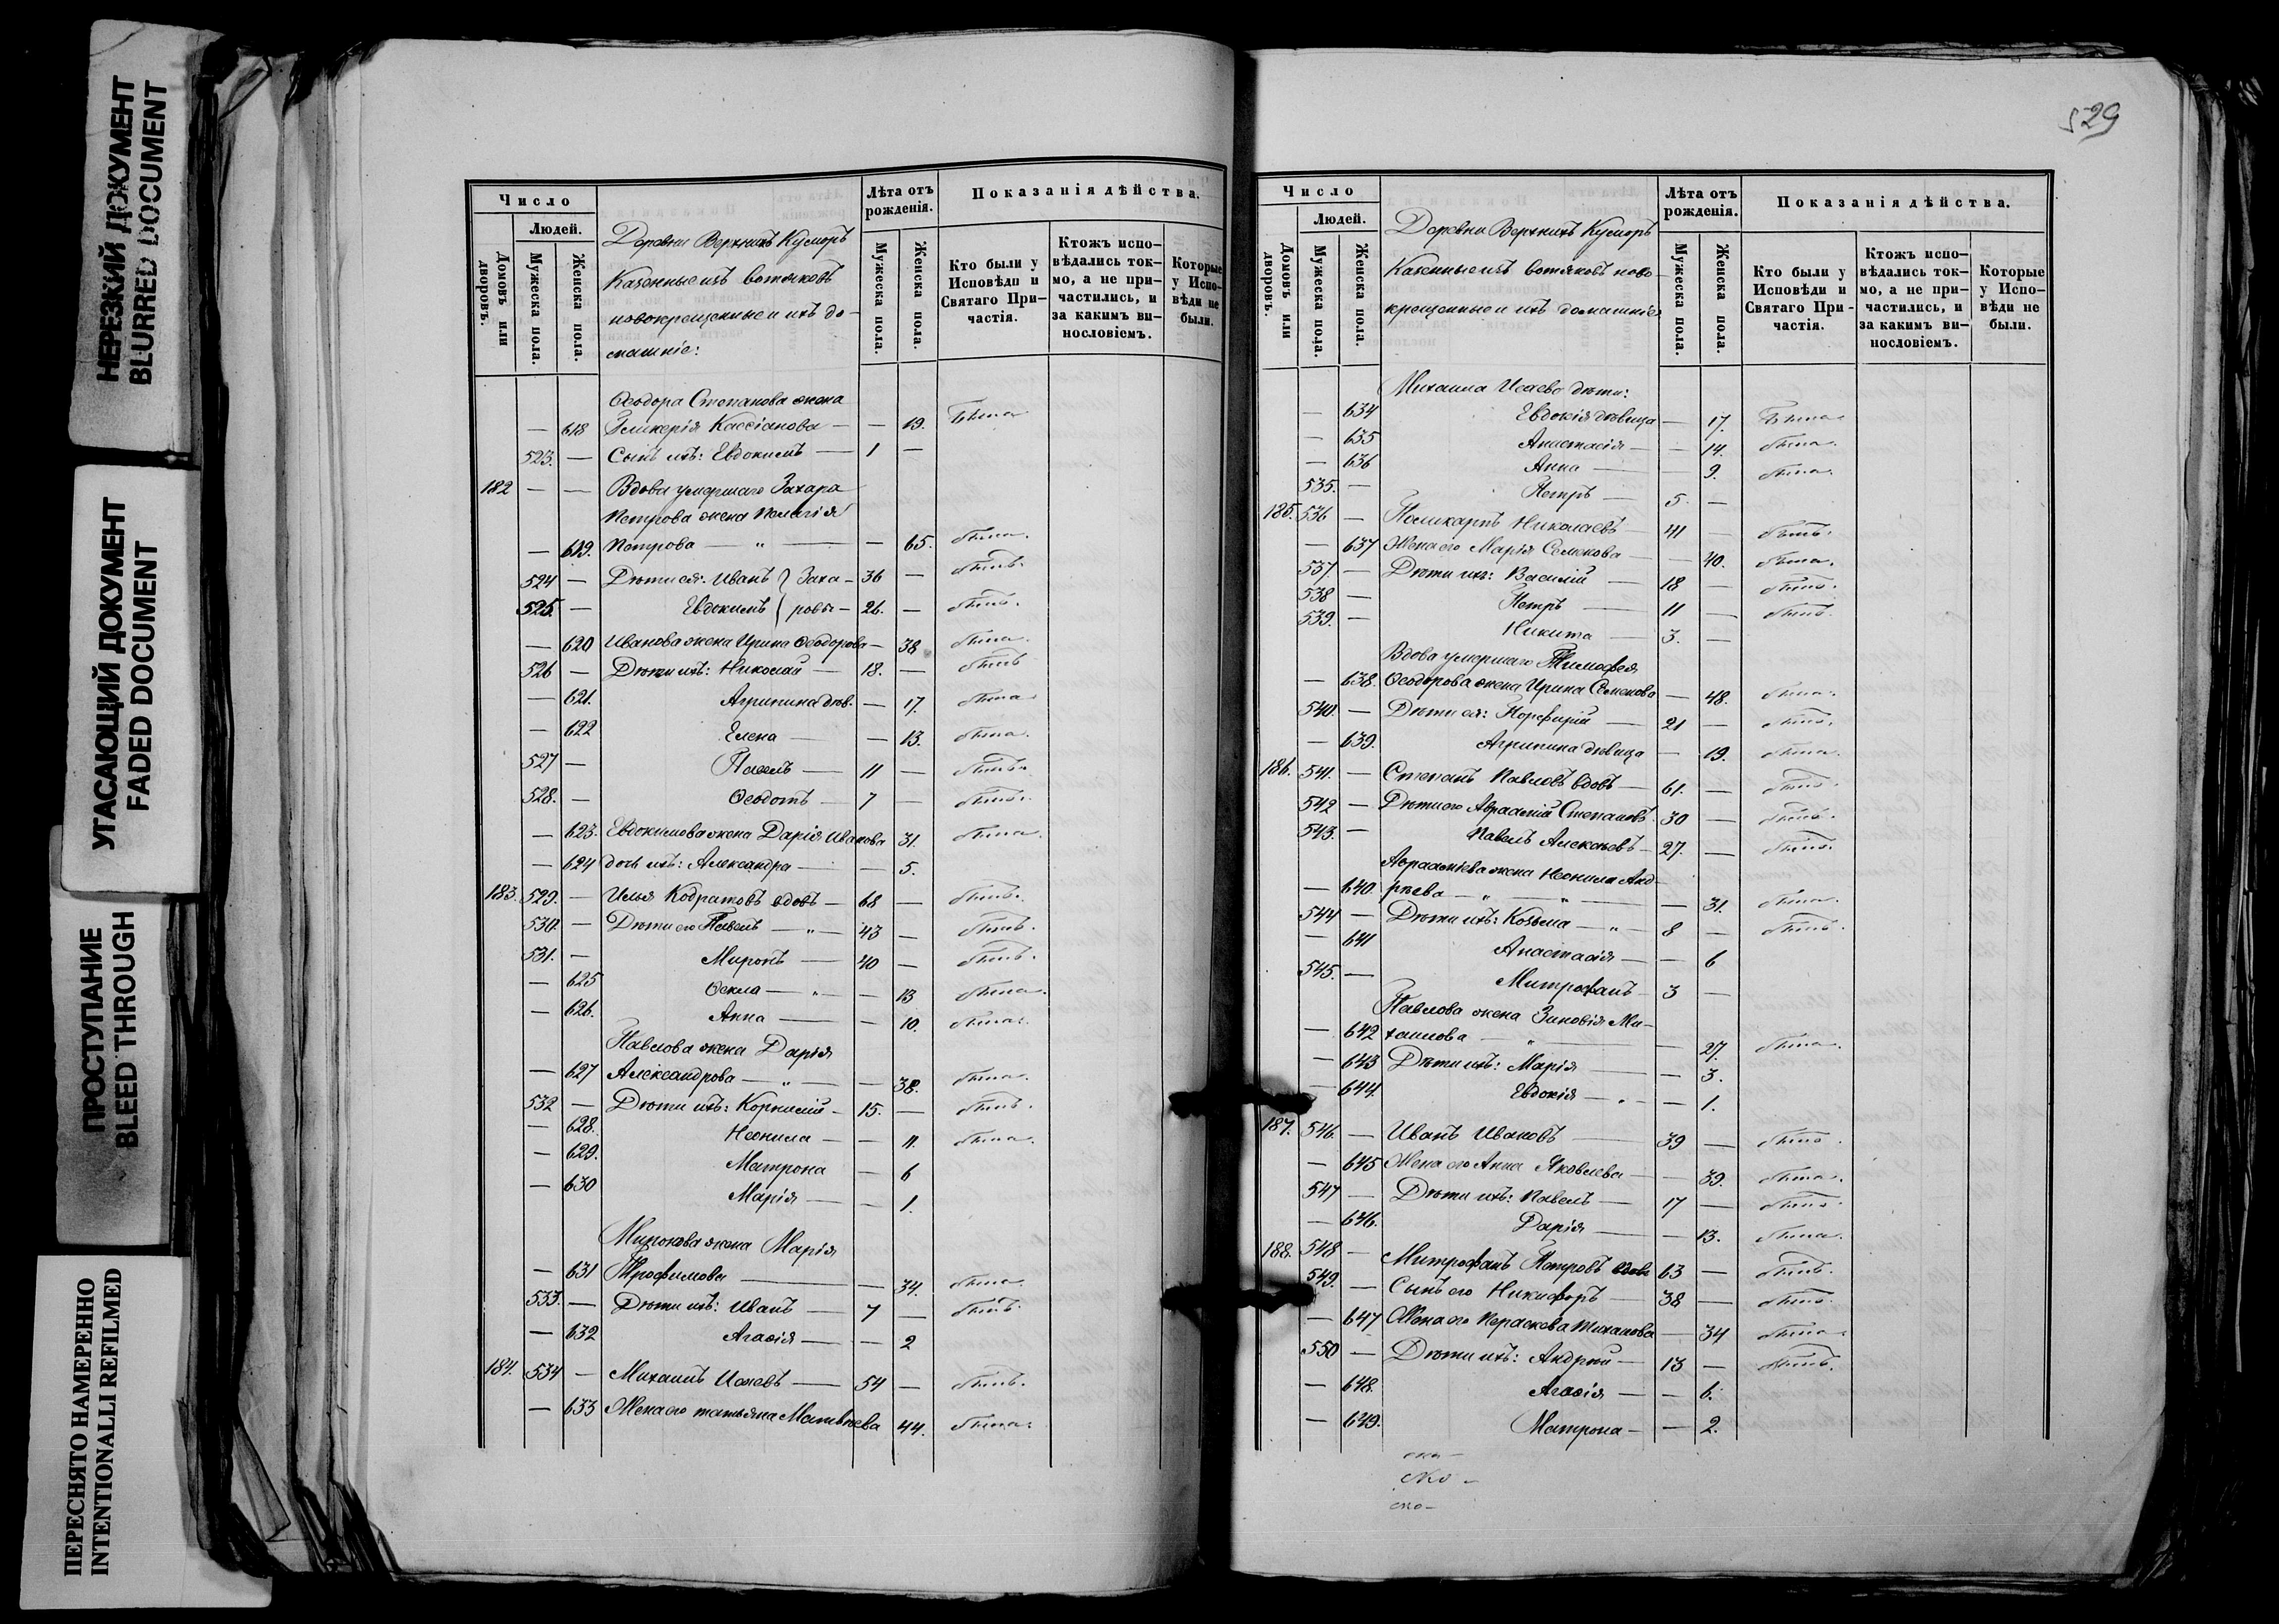 НЕРЕЗКИЙ ДОКУМЕНТ
BLURRED DOCUMENT
УГАСАЮЩИЙ ДОКУМЕНТ
FADED DOCUMENT
ПРОСТУПАНИЕ
BLEED THROUGH
ПЕРЕСНЯТО НАМЕРЕННО
INTENTIONALLI REFILMED
Число
Людей.
Домовъ или дворовъ.
Мужеска пола.
Женска пола.
Деревни Верхнихъ Кусморъ
Казенные изъ вотяковъ
новокрещенные и ихъ до-
машніе:
Лѣта отъ рожденія.
Мужеска пола.
Женска пола.
Показанія дѣйства.
Кто были у Исповѣди и Святаго При-частія.
Ктожъ испо-вѣдались ток-мо, а не при-частились, и за какимъ ви-нословіемъ.
Которые у Испо-вѣди не были.
Ѳеодора Степанова жена
— 618 Гликерія Кассіанова — — 19. Была
523. — Сынъ ихъ: Евдокимъ — 1 —
182 — — Вдова умершаго Захара
Петрова жена Пелагія
— 619. Петрова — „ — — 65. была.
524 — Дѣти ея: Иванъ } Заха- 36 — былъ.
525. — Евдокимъ } ровы — 26. — былъ.
— 620 Иванова жена Ирина Ѳеодорова — 38 была.
526 — Дѣти ихъ: Николай — 18. — былъ
— 621. Агрипина дѣв. — — 17. была
— 622 Елена — — 13. была.
527 — Павелъ — 11 — былъ.
528. — Ѳеодотъ — 7 — былъ.
— 623. Евдокимова жена Дарія Иванова 31. была.
— 624 дочь ихъ: Александра — — 5.
183. 529. — Илья Кодратовъ вдовъ — 68 — былъ.
530. — Дѣти его Павелъ — „ — 43 — былъ.
531. — Миронъ — 40 — былъ.
— 625 Ѳекла — „ — — 13 была.
— 626. Анна — — 10. была.
Павлова жена Дарія
— 627 Александрова — „ — — 38. была.
532 — Дѣти ихъ: Корнилій — 15. — былъ.
— 628. Неонила — — 11. была.
— 629. Матрона — 6
— 630 Марія — — 1.
Миронова жена Марія
— 631 Трофимова — — 34. была.
533. — Дѣти ихъ: Иванъ — 7 — былъ.
— 632 Агаѳія — — 2
184. 534 — Михаилъ Исаевъ — 54 — былъ.
— 633 Жена его татьяна Матвѣева 44. была.
529
Число
Людей.
Домовъ или дворовъ.
Мужеска пола.
Женска пола.
Деревни Верхнихъ Кусморъ
Казенные изъ вотяковъ ново-
крещенные и ихъ домашніе
Лѣта отъ рожденія.
Мужеска пола.
Женска пола.
Показанія дѣйства.
Кто были у Исповѣди и Святаго При-частія.
Ктожъ испо-вѣдались ток-мо, а не при-частились, и за какимъ ви-нословіемъ.
Которые у Испо-вѣди не были.
Михаила Исаева дѣти:
— 634 Евдокія дѣвица — 17. Была
— 635 Анастасія — — 14. была.
— 636 Анна — 9. была.
535. — Петръ — 5. —
185. 536 — Поликарпъ Николаевъ — 41 — былъ.
— 637 Жена его Марія Семенова — — 40. была.
537. — Дѣти ихъ: Василій — 18 — былъ.
538 — Петръ — 11 — былъ.
539. — Никита — 3. —
Вдова умершаго Тимофея
— 638. Ѳеодорова жена Ирина Семенова — 48. была.
540. — Дѣти ея: Порфирій — 21 — былъ.
— 639. Агрипина дѣвица — 19. была.
186. 541. — Степанъ Павловъ вдовъ — 61. — былъ.
542 — Дѣти его Авраамій Степановъ. 30 — былъ.
543. — Павелъ Алексѣевъ — 27. — былъ.
Авраамiева жена Неонила Анд-
— 640. рѣева — „ — „ — — 31. была.
544 — Дѣти ихъ: Козьма — „ — 8 — былъ.
— 641 Анастасія — — 6
545. — Митрофанъ — 3 —
Павлова жена Зиновія Ми-
— 642 хаилова — „ — — 27. была.
— 643 Дѣти ихъ: Марія — — 3.
— 644. Евдокія — „ — — 1.
187. 546. — Иванъ Ивановъ — 39 — былъ.
— 645 Жена его Анна Яковлева — — 39. была.
547 — Дѣти ихъ: Павелъ — 17 — былъ.
— 646. Дарія — — 13. была.
188. 548 — Митрофанъ Петровъ вдовъ 63 — былъ.
549. — Сынъ его Никифоръ — 38 — былъ.
— 647 Жена его Параскева Тихонова — 34 была.
550 — Дѣти ихъ: Андрей — 13 — былъ.
— 648. Агаѳія — — 6.
— 649. Матрона — — 2.